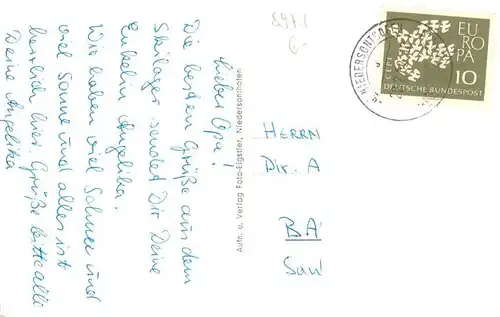 Lieber Opa!
Die besten Grüße aus dem
Skilager sendet Dir Deine
Enkelin Angelika.
Wir haben viel Schnee und
viel Sonne und alles ist
herrlich hier. Grüße bitte alle
Deine Angelika
Aufn. u. Verlag Foto-Eigstler, Niedersonthofen
HERRN
Dir. A
BA
San
NIEDERSONTHO
EUROPA
CEPT
10
DEUTSCHE BUNDESPOST